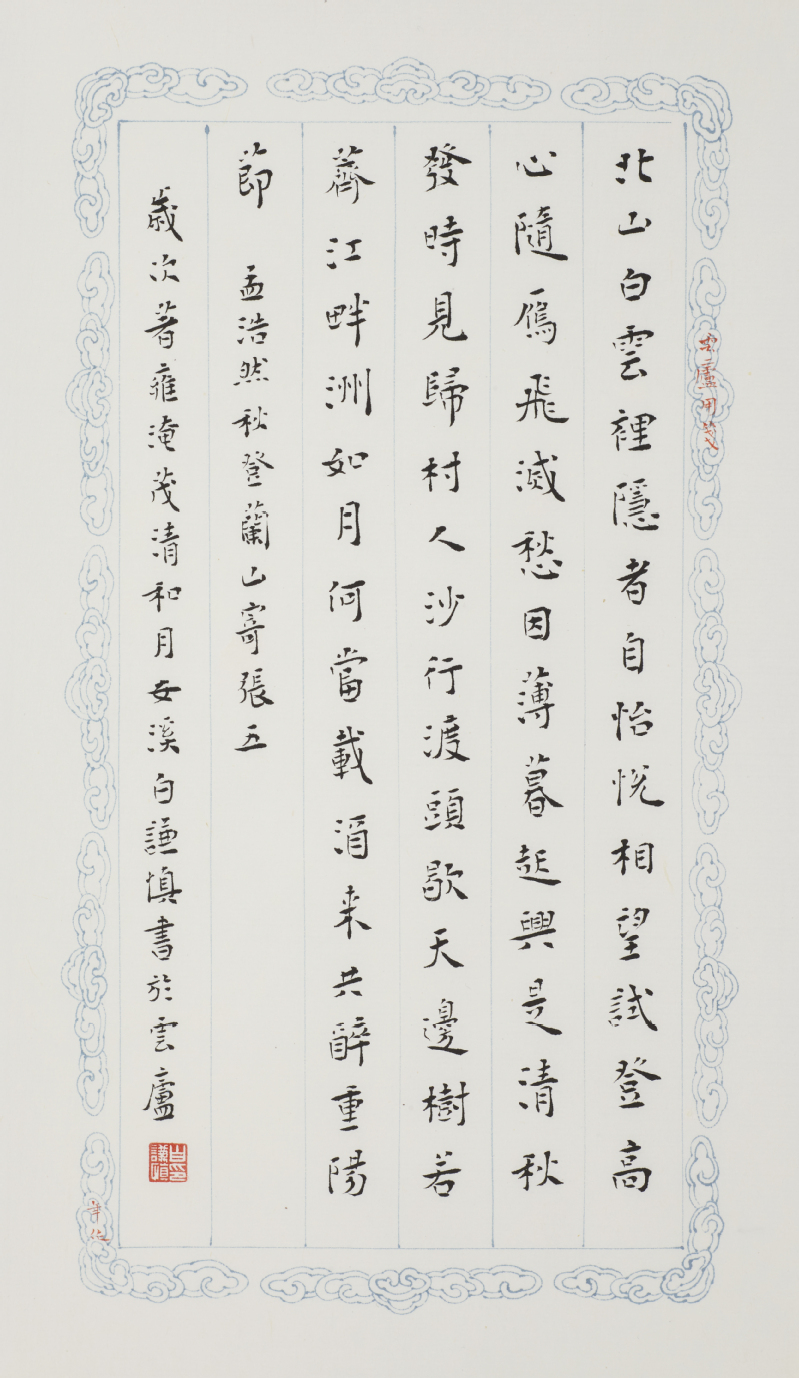 北山白雲裡隱者自怡悅相望試登高
心隨鴈飛滅愁因薄暮起興是清秋
發時見歸村人沙行渡頭歇天邊樹若
薺江畔洲如月何當載酒来共醉重陽
節 孟浩然秋登蘭山寄張五
歲次著雍淹茂清和月安溪白謙慎書於雲廬
雲廬用箋